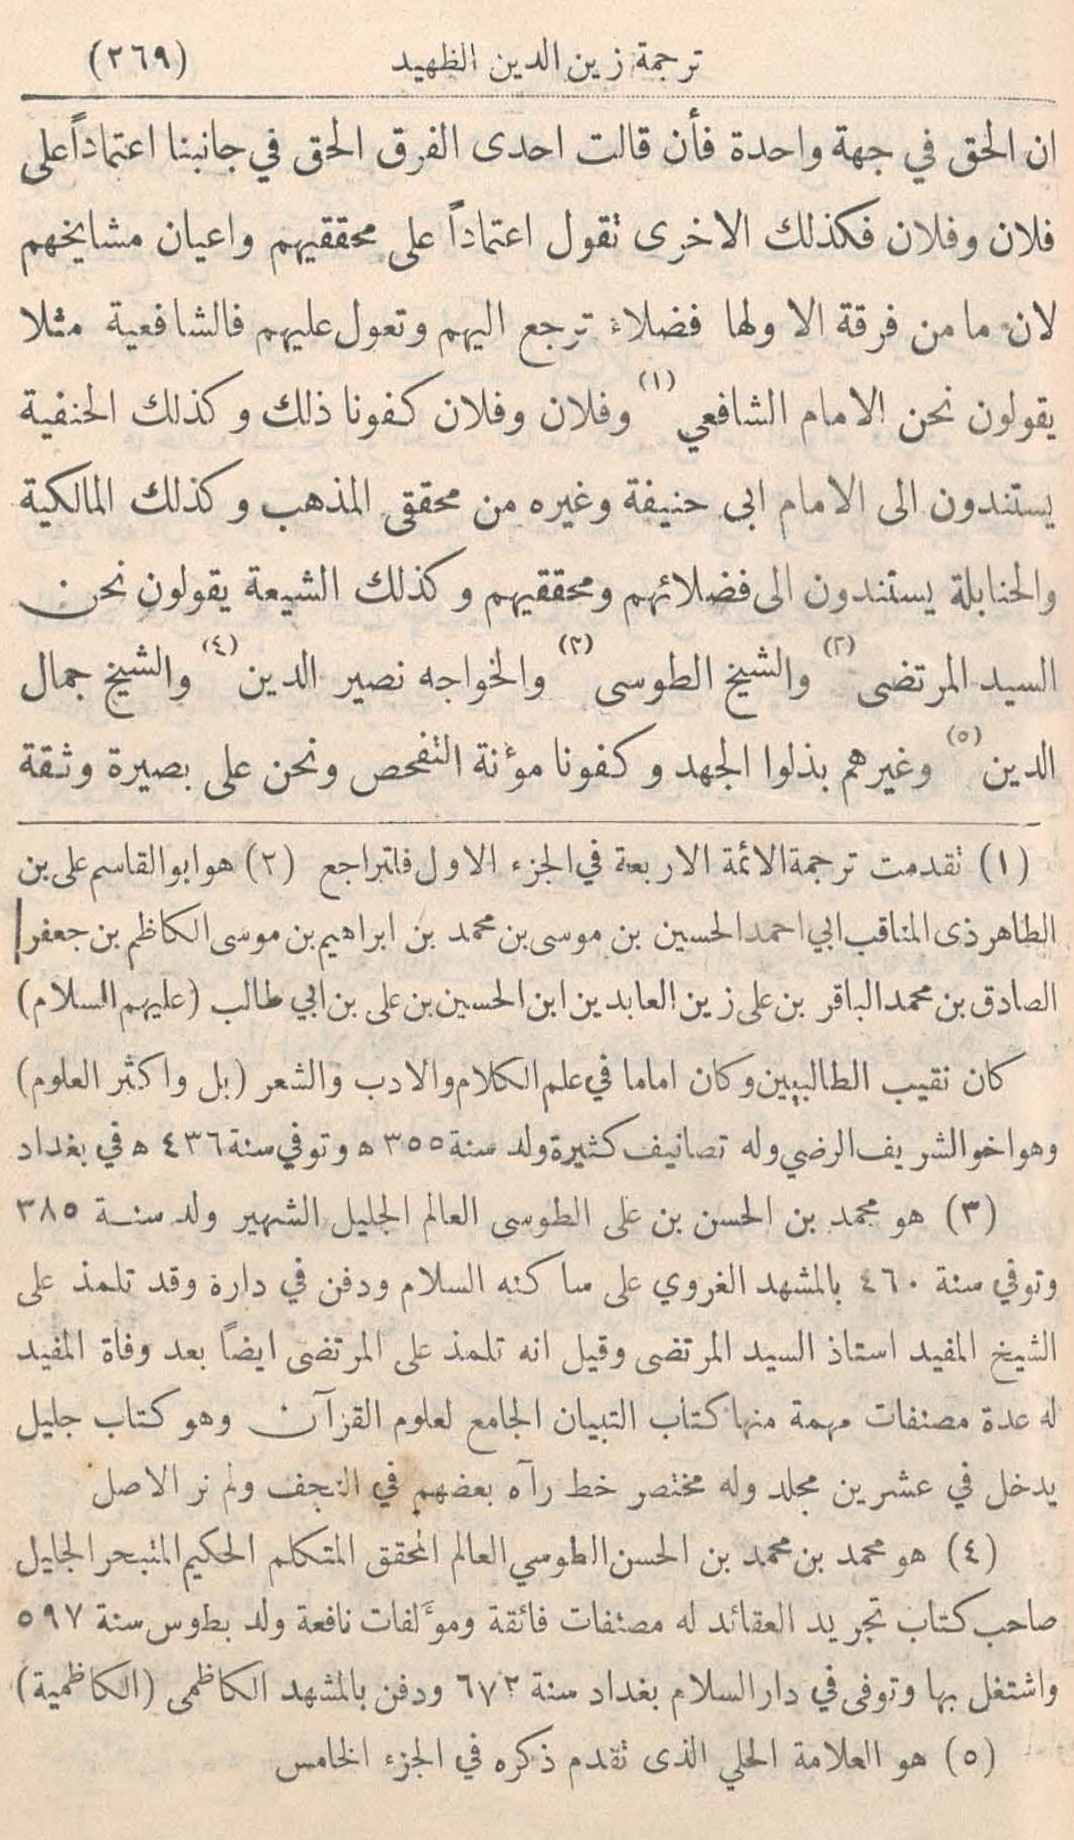 ترجمة زين الدين الظهيد (٢٦٩)
ان الحق في جهة واحدة فأن قالت احدى الفرق الحق في جانبنا اعتماداً على
فلان وفلان فكذلك الاخرى تقول اعتماداً على محققيهم واعيان مشايخهم
لان ما من فرقة الا ولها فضلاء ترجع اليهم وتعول عليهم فالشافعية مثلا
يقولون نحن الامام الشافعي (١) وفلان وفلان كفونا ذلك وكذلك الحنفية
يستندون الى الامام ابى حنيفة وغيره من محققى المذهب وكذلك المالكية
والحنابلة يستندون الى فضلائهم ومحققيهم وكذلك الشيعة يقولون نحن
السيد المرتضى (٢) والشيخ الطوسى (٣) والخواجه نصير الدين (٤) والشيخ جمال
الدين (٥) وغيرهم بذلوا الجهد وكفونا مؤنة التفحص ونحن على بصيرة وثقة
(١) تقدمت ترجمة الائمة الاربعة في الجزء الاول فلتراجع (٢) هو ابو القاسم على بن
الطاهر ذى المناقب ابي احمد الحسين بن موسى بن محمد بن ابراهيم بن موسى الكاظم بن جعفر
الصادق بن محمد الباقر بن على زين العابدين ابن الحسين بن على بن ابي طالب (عليهم السلام)
كان نقيب الطالبيين وكان اماما في علم الكلام والادب والشعر (بل واكثر العلوم)
وهو اخو الشريف الرضي وله تصانيف كثيرة ولد سنة ٣٥٥ ه وتوفي سنة ٤٣٦ ه في بغداد
(٣) هو محمد بن الحسن بن على الطوسى العالم الجليل الشهير ولد سنة ٣٨٥
وتوفي سنة ٤٦٠ بالمشهد الغروي على ساكنه السلام ودفن في دارة وقد تلمذ على
الشيخ المفيد استاذ السيد المرتضى وقيل انه تلمذ على المرتضى ايضاً بعد وفاة المفيد
له عدة مصنفات مهمة منها كتاب التبيان الجامع لعلوم القرآن وهو كتاب جليل
يدخل في عشرين مجلد وله مختصر خط رآه بعضهم في النجف ولم نر الاصل
(٤) هو محمد بن محمد بن الحسن الطوسي العالم المحقق المتكلم الحكيم المتبحر الجليل
صاحب كتاب تجريد العقائد له مصنفات فائقة ومؤلفات نافعة ولد بطوس سنة ٥٩٧
واشتغل بها وتوفى في دار السلام بغداد سنة ٦٧٢ ودفن بالمشهد الكاظمى (الكاظمية)
(٥) هو العلامة الحلي الذى تقدم ذكره في الجزء الخامس